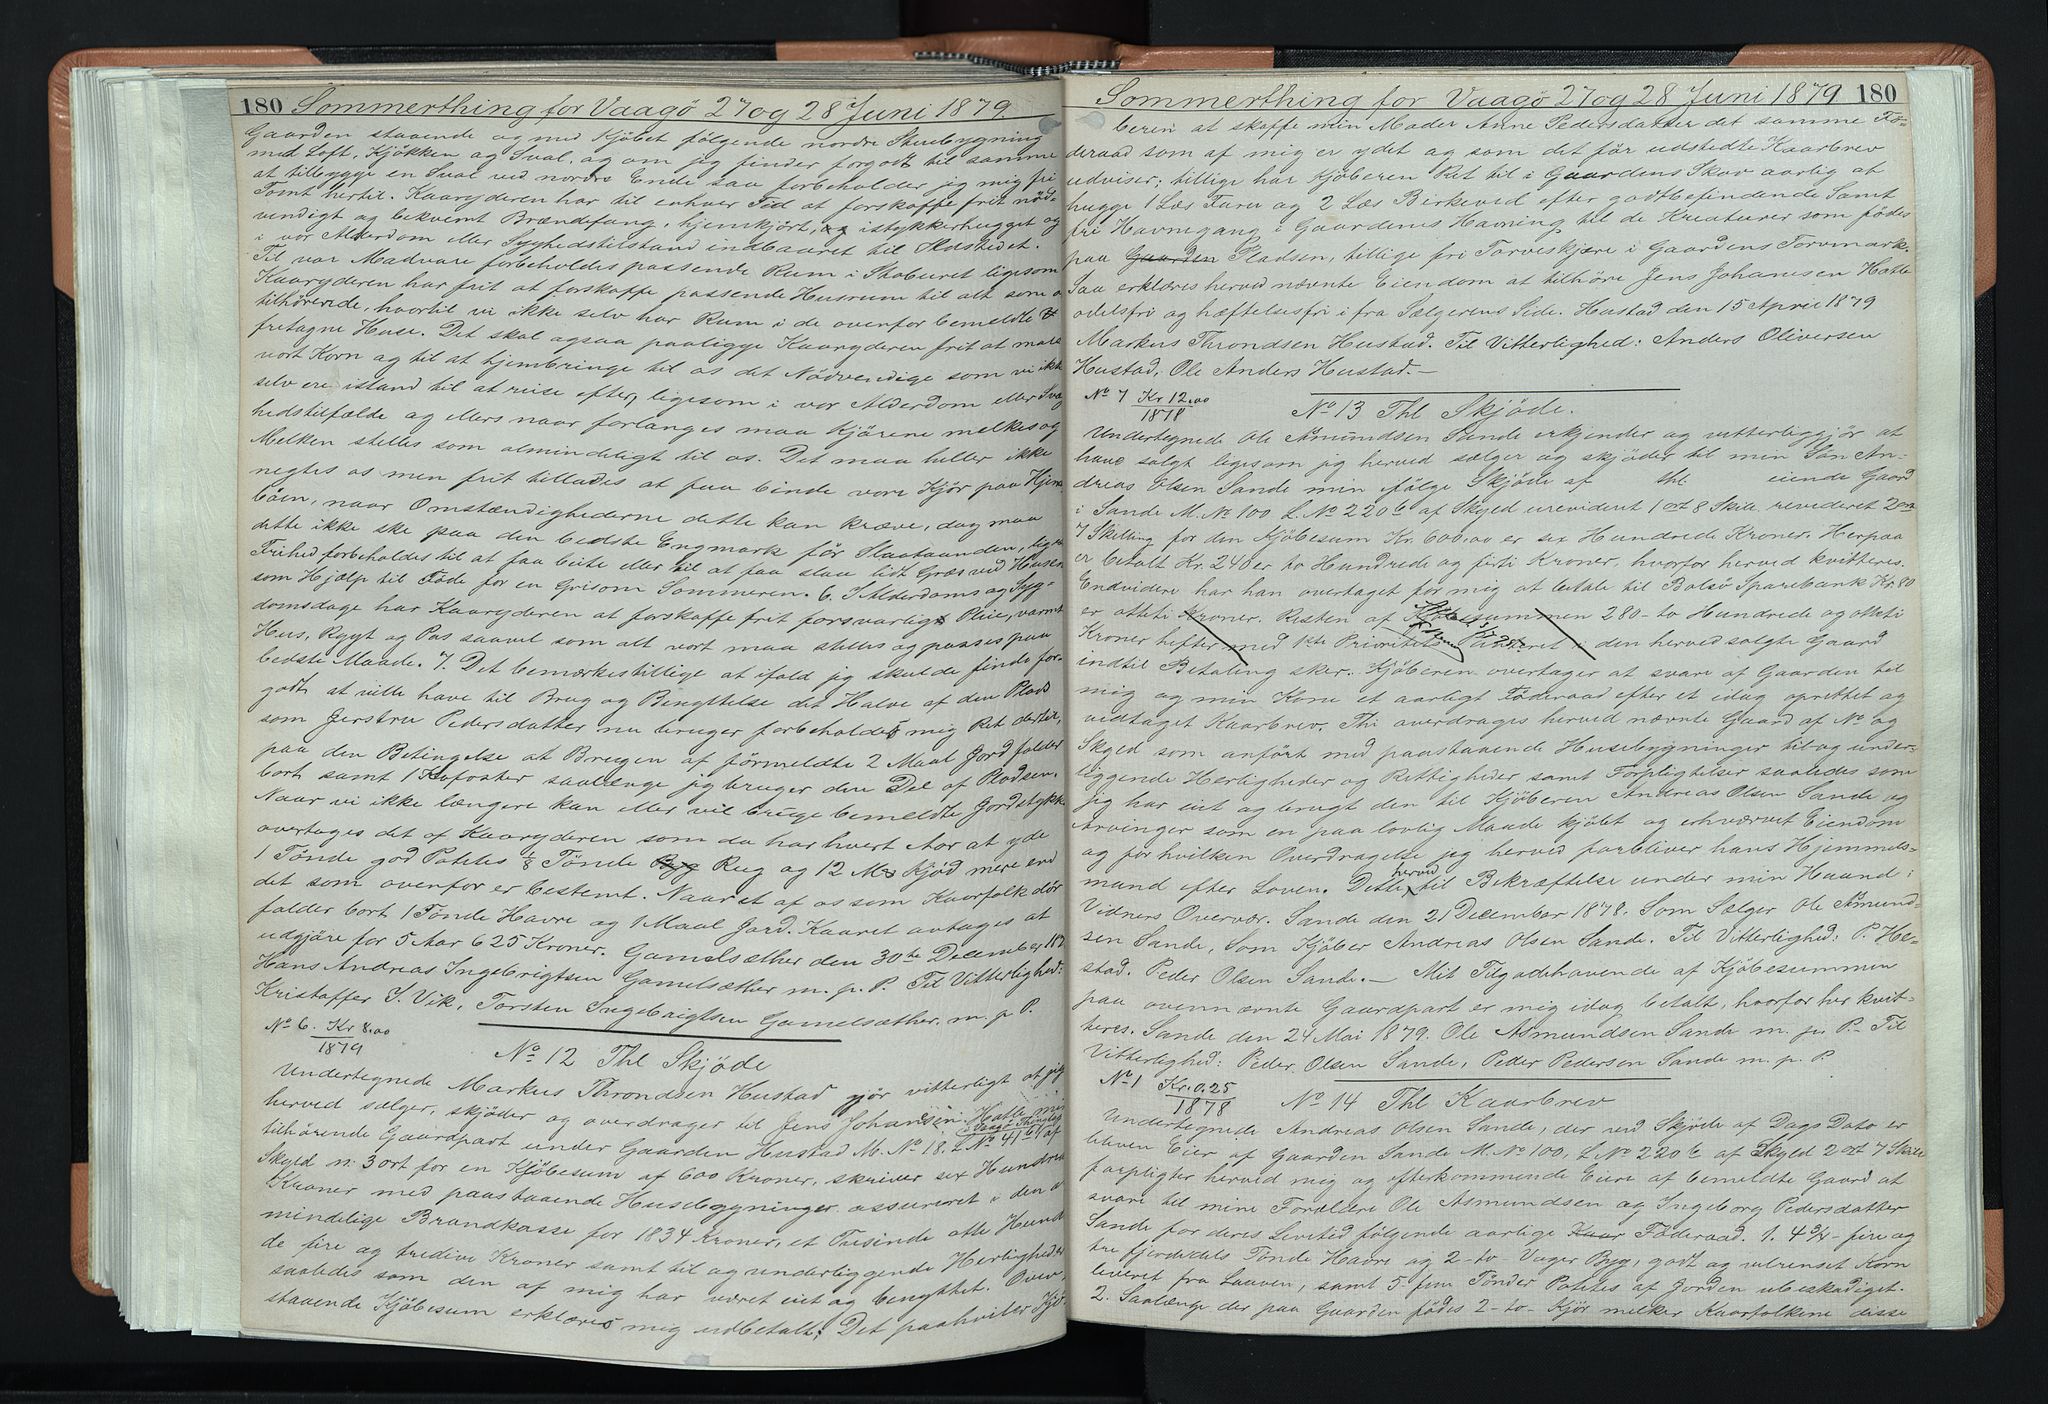 180 Sommerthing for Vaagö 27 og 28 Juni 1879
Gaarden staaende og med Kjöbet følgende nordre Stuebygning
med Loft, Kjökken og Sval, og om jeg finder forgodt til samme
at tilbygge en Sval ved nordre Ende saa forbeholder jeg mig fri
Tomt hertil. Kaaryderen har til enhver Tid at forskaffe frit nöd-
vendigt og bekvemt Brændefang, hjemkjört, og istykkerhugget og
i vor Alderdom eller Syghedstilstand indbaaret til Ildstedet.
Til vor Madvare forbeholdes passende Rum i Staburet ligesom
Kaaryderen har frit at forskaffe passende Husrum til alt som os
tilhörende, hvortil vi ikke selv har Rum i de ovenfor bemeldte
fretagne Huse. Det skal ogsaa paaligge Kaaryderen frit at male
vort Korn og til at hjembringe til os det Nödvendige som vi ikke
selv ere istand til at reise efter, ligesom i vor Alderdom eller Svag
hedstilfælde og ellers naar forlanges maa Kjörene melkes og
Melken stelles som almindeligt til os. Det maa heller ikke
negtes os men frit tillades at faa binde vore Kjör paa Hjem-
böen, naar Omstændighederne dette kan kræve, dog maa
dette ikke ske paa den bedste Engmark för Slaataanden, lige
Frihed forbeholdes til at faa beite eller til at faa slaa lidt Græs ved Husene
som Hjælp til Föde for en Gris om Sommeren. 6. I Alderdoms og Syg-
domsdage har Kaaryderen at forskaffe frit forsvarligt Pleie, varmt
Hus, Rygt og Pas saavel som alt vort maa stelles og passes paa
bedste Maade. 7. Det bemærkes tillige at ifald jeg skulde finde for-
godt at ville have til Brug og Benyttelse det Halve af den Plads
som Jerstru Pedersdatter nu bruger forbeholdes mig Ret dertil,
paa den Betingelse at Brugen af förmeldte 2 Maal Jord falder
bort samt 1 Kofoster saalænge jeg bruger den Del af Pladsen.
Naar vi ikke længere kan eller vil bruge bemeldte Jordstykke
overtages det af Kaaryderen som da har hvert Aar at yde
1 Tönde god Potetes 1/8 Tönde Byg Rug og 12 Mk Kjöd mere end
det som ovenfor er bestemt. Naar et af os som Kaarfolk dör
falder bort 1 Tönde Havre og 1 Maal Jord. Kaaret avtages at
udgjöre for 5 Aar 625 Kroner. Gamelsæther den 30te December 187
Hans Andreas Ingebrigtsen Gamelsæther m. p. P. Til Vitterlighed:
Kristoffer I. Vik, Torsten Ingebrigtsen Gamelsæther. m. p. P.
No 6. Kr 8.00
1879
No 12 Thl Skjöde
Undertegnede Markus Throndsen Hustad gjör vitterligt at jeg
herved sælger, skjöder og overdrager til Jens Johansen Hatle min
i Vaagö Thinglag
tilhörende Gaardpart under Gaarden Hustad M. No 18. L No 41 af
Skyld n: 3 ort for en Kjöbesum af 600 Kroner, skriver sex Hundrede
Kroner med paastaaende Husebygninger assureret i den al
mindelige Brandkasse for 1834 Kroner, et Tusinde otte Hund
de fire og tredive Kroner samt til og underliggende Herligheder
saaledes som den af mig har været eiet og benyttet. Oven-
staaende Kjöbesum erklæres mig udbetalt. Det paahviler Kjö-
Sommerthing for Vaagö 27 og 28 Juni 1879 180
beren at skaffe min Moder Anne Pedersdatter det samme Fö-
deraad som af mig er ydet og som det för udstedte Kaarbrev
udviser; tillige har Kjöberen Ret til i Gaardens Skov aarlig at
hugge 1 Læs Furu og 2 Læs Birkeved efter godtbefindende Samt
fri Havnegang i Gaardens Havning til de Kreaturer som födes
paa Gaarden Pladsen, tillige fri Torveskjære i Gaardens Torvmark.
Saa erklæres herved nævnte Eiendom at tilhöre Jens Johansen Hatle
odelsfri og hæftelsesfri i fra Sælgerens Side. Hustad den 15 April 1879
Markus Throndsen Hustad. Til Vitterlighed: Anders Oliversen
Hustad, Ole Anders Hustad.—
No 7 Kr 12.00
1878
No 13 Thl Skjöde.
Undertegnede Ole Asmundsen Sande erkjender og vitterliggjör at
have solgt ligesom jeg herved sælger og skjöder til min Sön An-
dreas Olsen Sande min ifölge Skjöde af thl. eiende Gaard
i Sande M. No 100 L. No 220b af Skyld urevideret 1 ort 8 Skill. revideret 2 ort
7 Skilling for den Kjöbesum Kr. 600,00 er sex Hundrede Kroner. Herpaa
er betalt Kr. 240 er to Hundrede og firti Kroner, hvorfor herved kvitteres.
Endvidere har han overtaget for mig at betale til Bolsö Sparebank Kr. 80
er otteti Kroner. Resten af Kjöbesummen 280- to Hundrede og otteti
Kroner hefter med 1ste Prioritets Panteret i den herved solgte Gaard
indtil Betaling sker. Kjöberen overtager at svare af Gaarden til
mig og min Kone et aarligt Föderaad efter et idag oprettet og
vedtaget Kaarbrev. Thi overdrages herved nævnte Gaard af No og
Skyld som anfört med paastaaende Husebygninger til og under-
liggende Herligheder og Rettigheder samt Forpligtelser saaledes som
jeg har eiet og brugt den til Kjöberen Andreas Olsen Sande og
Arvinger som en paa lovlig Maade kjöbt og erhværvet Eiendom
og for hvilken Overdragelse jeg herved forbliver hans Hjemmels-
mand efter Loven. Dette herved til Bekræftelse under min Haand i
Vidners Overvær. Sande den 21 December 1878. Som Sælger Ole Asmund-
sen Sande, Som Kjöber Andreas Olsen Sande. Til Vitterlighed: P. He-
stad. Peder Olsen Sande.— Mit Tilgodehavende af Kjöbesummen
paa ovennævnte Gaardpart er mig idag betalt, hvorfor her kvit-
teres. Sande den 24 Mai 1879. Ole Asmundsen Sande m. p. P. Til
Vitterlighed: Peder Olsen Sande, Peder Pedersen Sande m. p. P.
No 1 Kr. 0.25
1878
No 14 Thl Kaarbrev
Undertegnede Andreas Olsen Sande, der ved Skjöde af Dags Dato er
bleven Eier af Gaarden Sande M. No 100, L No 220b af Skyld 2 ort 7 Skill
forpligter herved mig og efterkommende Eiere af bemeldte Gaard at
svare til mine Forældre Ole Asmundsen og Ingeborg Pedersdatter
Sande for deres Levetid fölgende aarlige Kaar Föderaad. 1. 4 3/4 - fire og
tre fjerdedels Tönde Havre og 2 - to Vager Byg, godt og velrenset Korn
leveret fra Laaven, samt 5 fem Tönder Potetes af Jorden ubeskadiget.
2. Saalænge der paa Gaarden födes 2 - to - Kjör melker Kaarfolkene disse